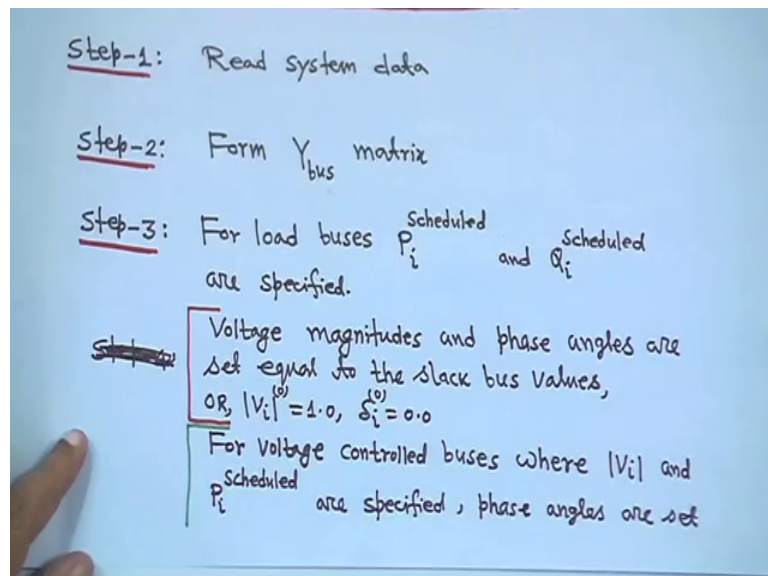 Step-1: Read system data
Step-2: Form Y_bus matrix
Step-3: For load buses P_i^Scheduled and Q_i^Scheduled
are specified.
Voltage magnitudes and phase angles are
set equal to the slack bus values,
OR, |V_i|^(0) = 1.0, δ_i^(0) = 0.0
For voltage controlled buses where |V_i| and
P_i^Scheduled are specified, phase angles are set